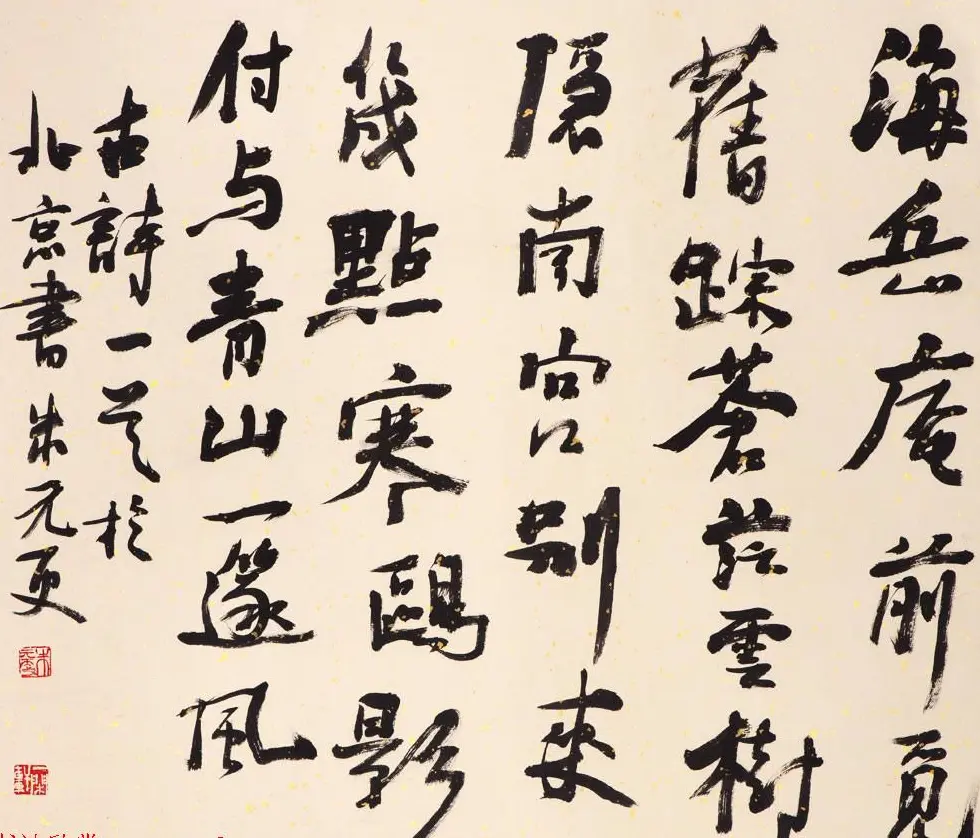 海岳庵前覓
舊踪蒼茫雲樹
隱南宫別來
幾點寒鷗影
付与青山一篴風
古詩一首於
北京書朱元更